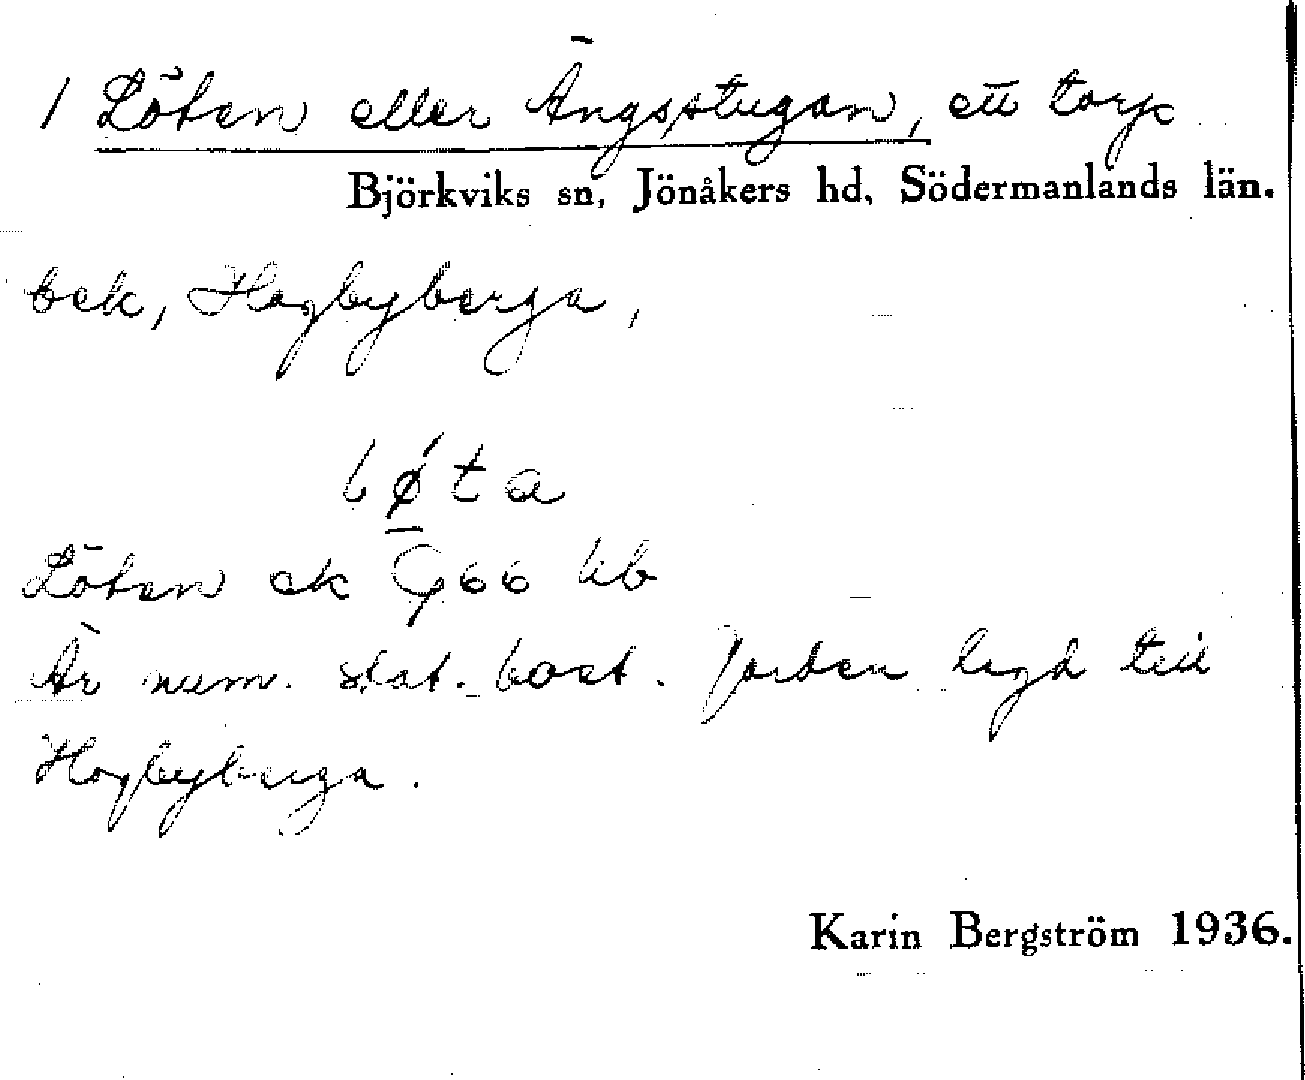 1 Löten eller Ängsstugan, ett torp
Björkviks sn, Jönåkers hd, Södermanlands län.
bek, Hogbyberga,
lǿta
Löten ek G66 hb
Är num. stat. bost. Jorden lagd till
Hogbyberga.
Karin Bergström 1936.